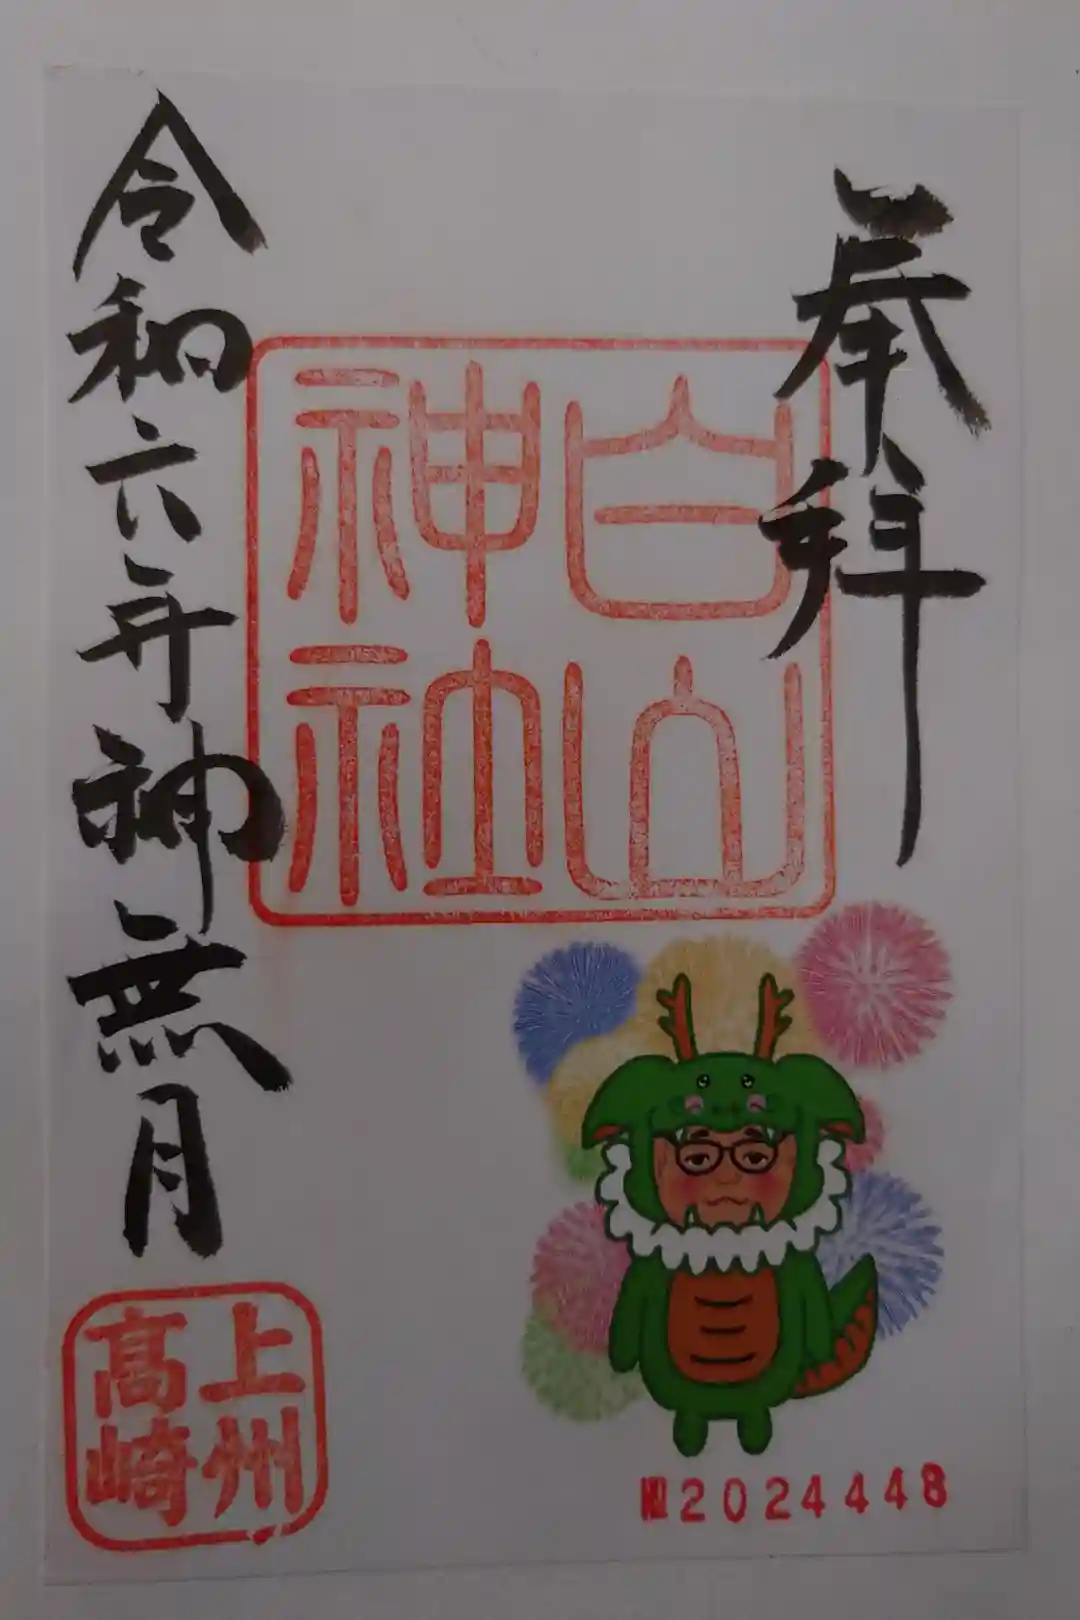 奉拝
白山
神社
令和六年神無月
上州
高崎
2024448